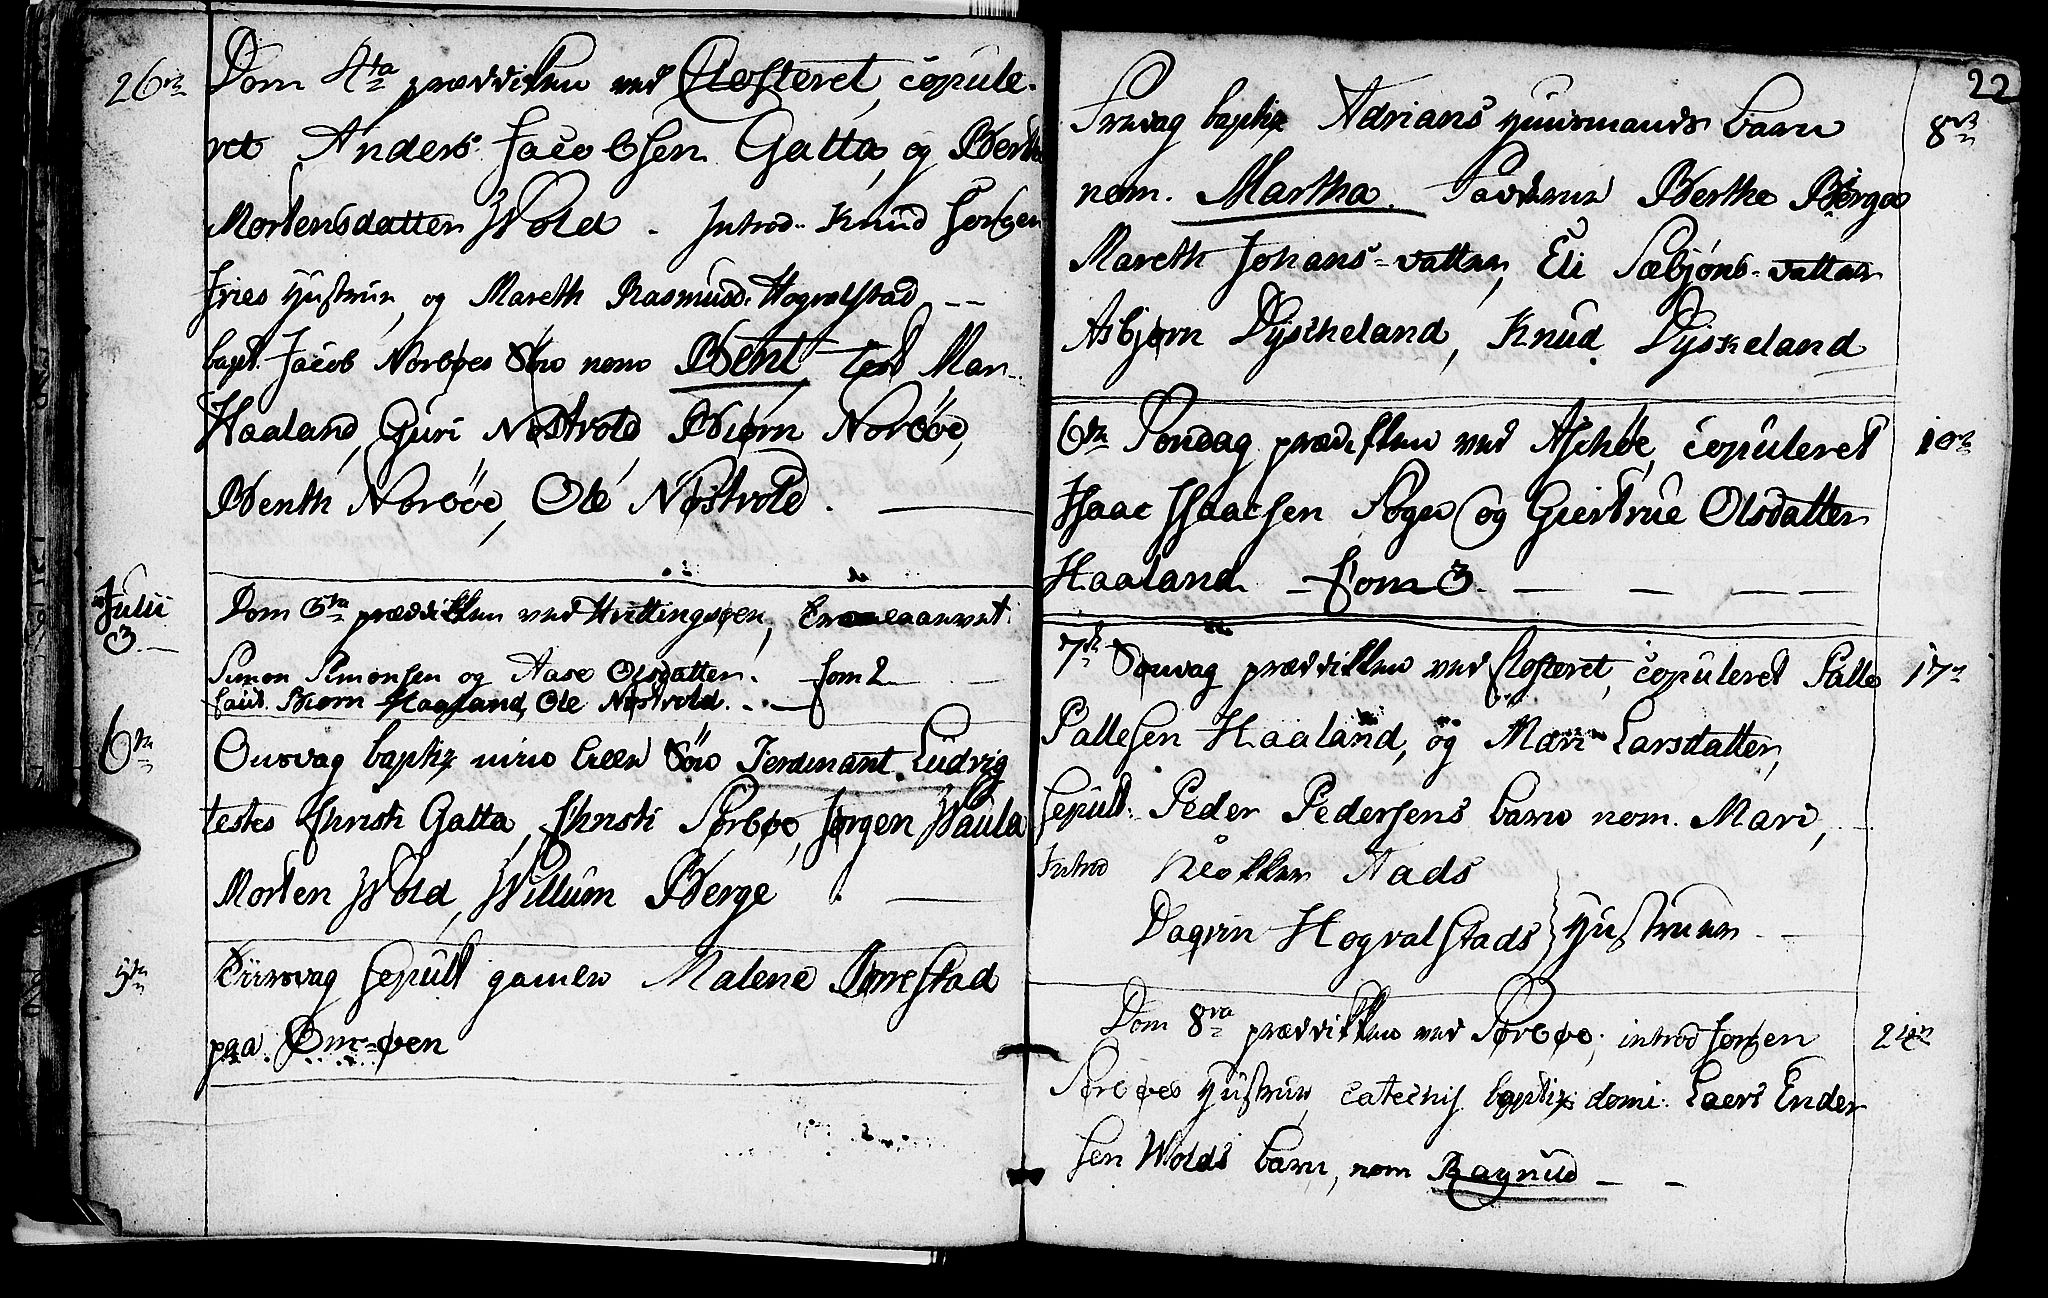 26de Dom 4ta prædikken ved Closteret, copule-
ret Anders Jacobsen Gatta, og Berthe
Mortensdatter Wold. Introd. Knud Jørgen
fries Hustrue, og Mareth Rasmusd. Hogvalstad --
bapt. Jacob Norbøes Søn nom Bent test Mari
Haaland, Guri Nøstvold Biørn Norbøe,
Benth Norbøe, Ole Nøstvold.
Julii
3. Dom 5ta prædikken ved Huttingsøen, Trolovet
Simon Simonsen og Aase Olsdatter. fom 2
Caut. Biørn Haaland, Ole Nøstvold.
6te Onsdag baptiz min liden Søn Ferdinant Ludvig
testes Christi Gatta, Christi Sørbøe, Jørgen Waula
Morten Wold, Willum Berge
sepult gamle Malene
paa Øm-øen
22
Fredag baptiz Adrians Huusmands barn 8de
nom. Martha. Fadderne Berthe Berge
Mareth Johans-datter, Eli Sæbjøns-datter
Asbjørn Dyscheland, Knud Dyskeland
6te Søndag prædikken ved Aschøe, copuleret 10de
Isaac Isaacsen Soge og Giertrue Olsdatter
Haaland - fom 3.
7de Søndag prædikken ved Closteret, copuleret Palle 17de
Pallesen Haaland, og Mari Larsdatter,
Sepult. Peder Pedersens barn nom. Mari,
Introd Aads
Dagfin Hogvalstads } Hustruer
Dom 8va prædikken ved Sørbøe, introd Jørgen 24de
Sørbøes Hustrue, catechis. baptiz domi. Laers Ender
sen Wolds barn, nom Ragnild